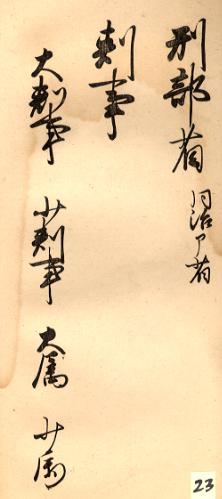 刑部省 同治卩省
判事
大判事 少判事 大属 少属
23